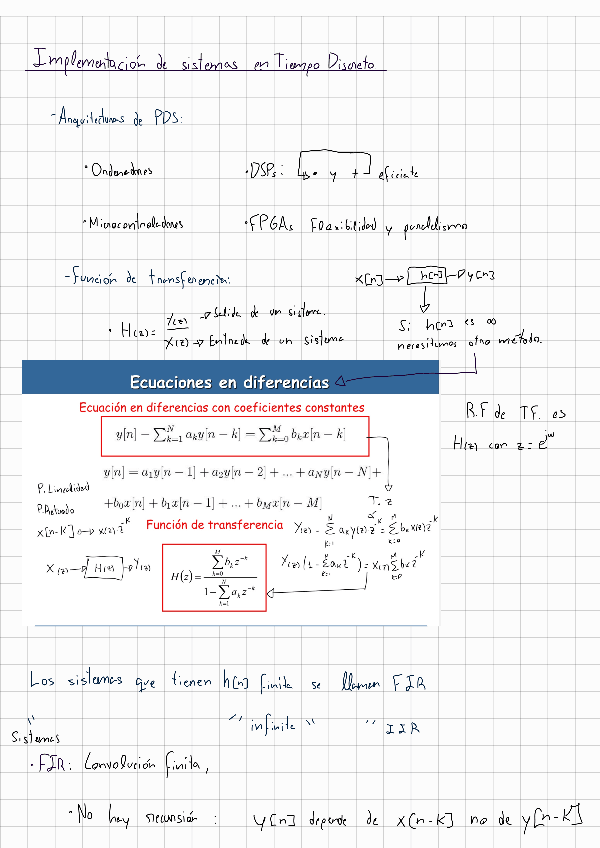 Implementación de sistemas en Tiempo Discreto
- Arquitecturas de PDS:
• Ordenadores
• DSPs: • y + eficiente
• Microcontroladores
• FPGAs Flexibilidad y paralelismo
- Función de transferencia:
x[n] → h[n] → y[n]
• H(z) = Y(z) → Salida de un sistema.
X(z) → Entrada de un sistema
Si h[n] es ∞
necesitamos otro método.
Ecuaciones en diferencias
Ecuación en diferencias con coeficientes constantes
y[n] − ∑_{k=1}^{N} a_k y[n − k] = ∑_{k=0}^{M} b_k x[n − k]
R.F de T.F. es
H(z) con z = e^{jω}
y[n] = a_1y[n − 1] + a_2y[n − 2] + ... + a_Ny[n − N]+
+b_0x[n] + b_1x[n − 1] + ... + b_Mx[n − M]
P. Linealidad
P. Retardo
x[n-K] ○→ X(z)·z^{-K}
T. z
Función de transferencia
Y(z) - ∑_{k=1}^{N} a_k Y(z) z^{-K} = ∑_{k=0}^{M} b_k X(z) z^{-K}
X(z) → H(z) → Y(z)
H(z) = ∑_{k=0}^{M} b_k z^{-k} / 1 − ∑_{k=1}^{N} a_k z^{-k}
Y(z) (1 - ∑_{k=1}^{N} a_k z^{-K}) = X(z) ∑_{k=0}^{M} b_k z^{-K}
Los sistemas que tienen h[n] finita se llaman FIR
" " infinita " " IIR
Sistemas
• FIR: Convolución finita,
• No hay recursión: y[n] depende de x[n-K] no de y[n-K]